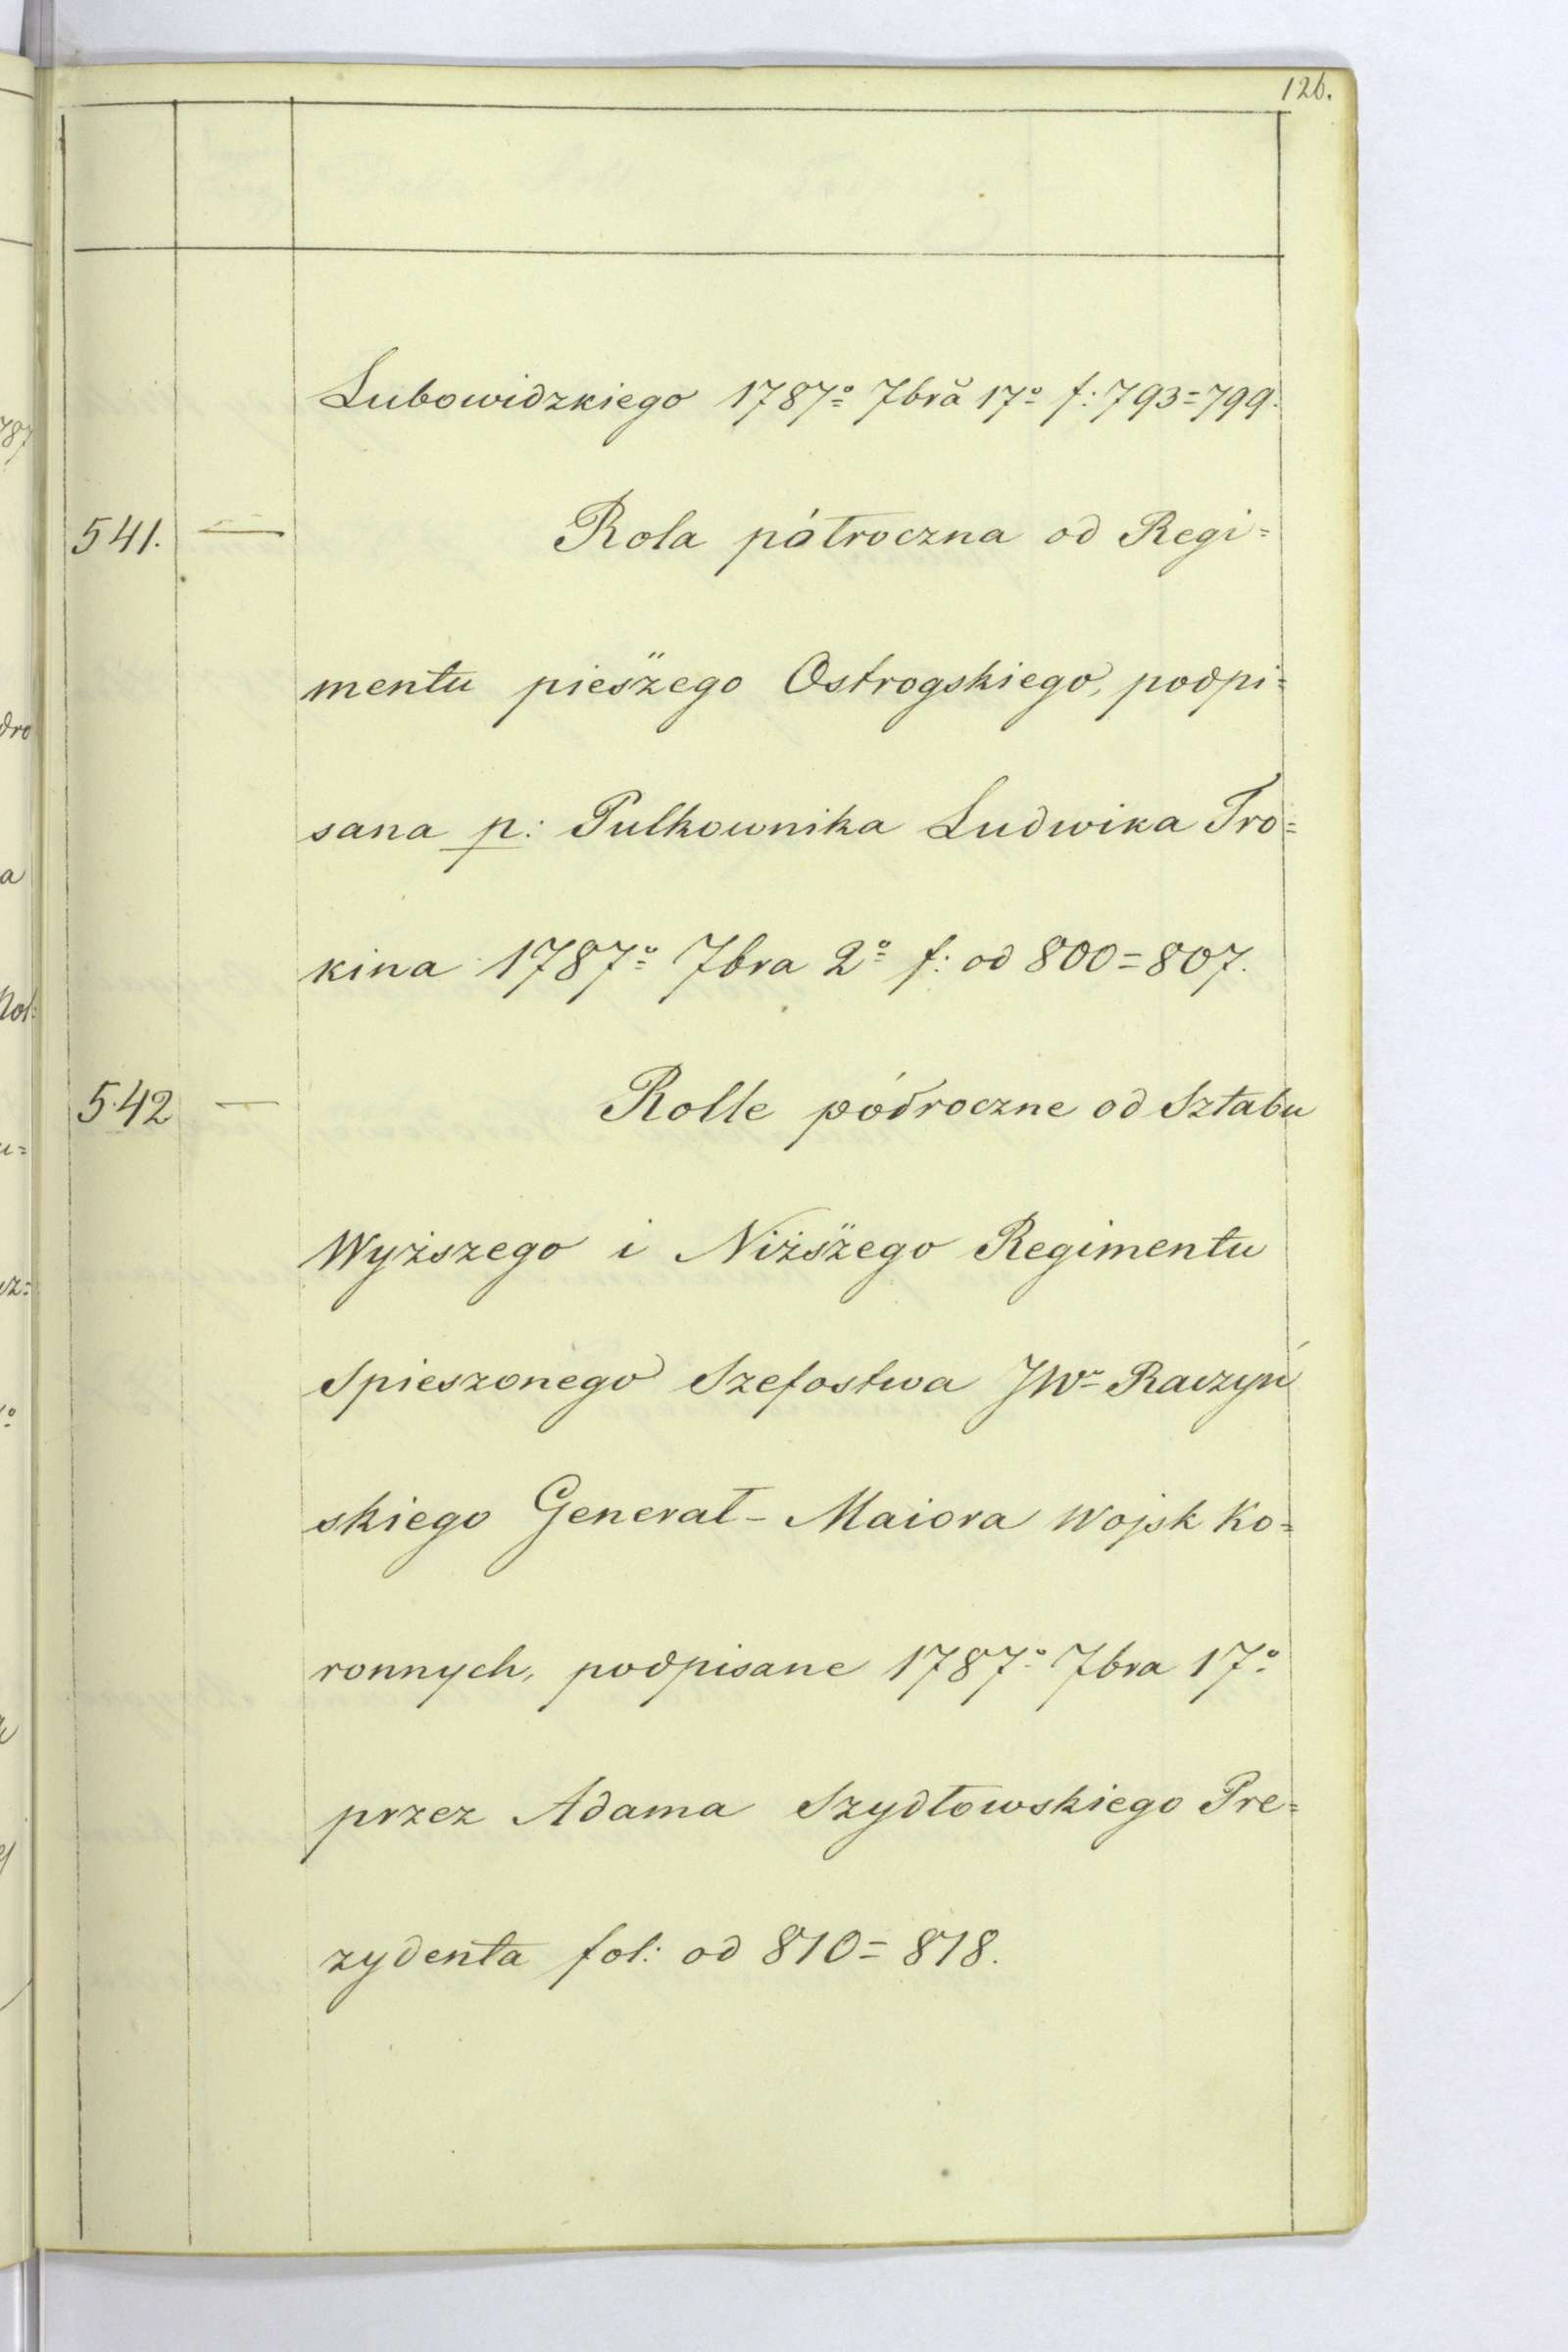 126.
Lubowidzkiego 1787º 7bră 17º f: 793=799.
541. — Rola pòłroczna od Regi=
mentu pieszego Ostrogskiego, podpi=
sana p: Pulkownika Ludwika Tro=
kina 1787º 7bra 2º f: od 800=807.
542 — Rolle półroczne od Sztabu
Wyższego i Niższego Regimentu
Spieszonego Szefostwa JWº Raczyń
skiego Generał-Maiora Wojsk Ko=
ronnych, podpisane 1787º 7bra 17º
przez Adama Szydłowskiego Pre=
zydenta fol: od 810=818.